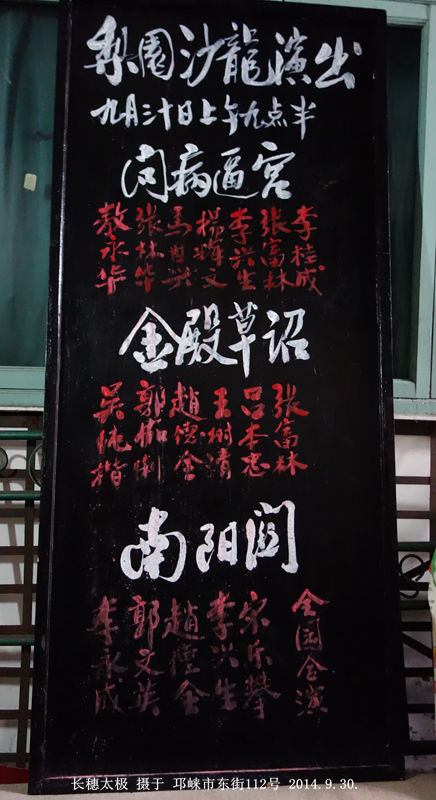 梨園沙龍演出
九月三十日上午九点半
问病逼宫
敖永华
张林华
马自兴
杨辉文
李兴生
张富林
李桂成
金殿草诏
吴
郭
赵德金
王树清
吕本忠
张富林
南阳関
李永成
郭文英
赵德金
李兴生
宋乐攀
长穗太极 摄于 邛崃市东街112号 2014.9.30.